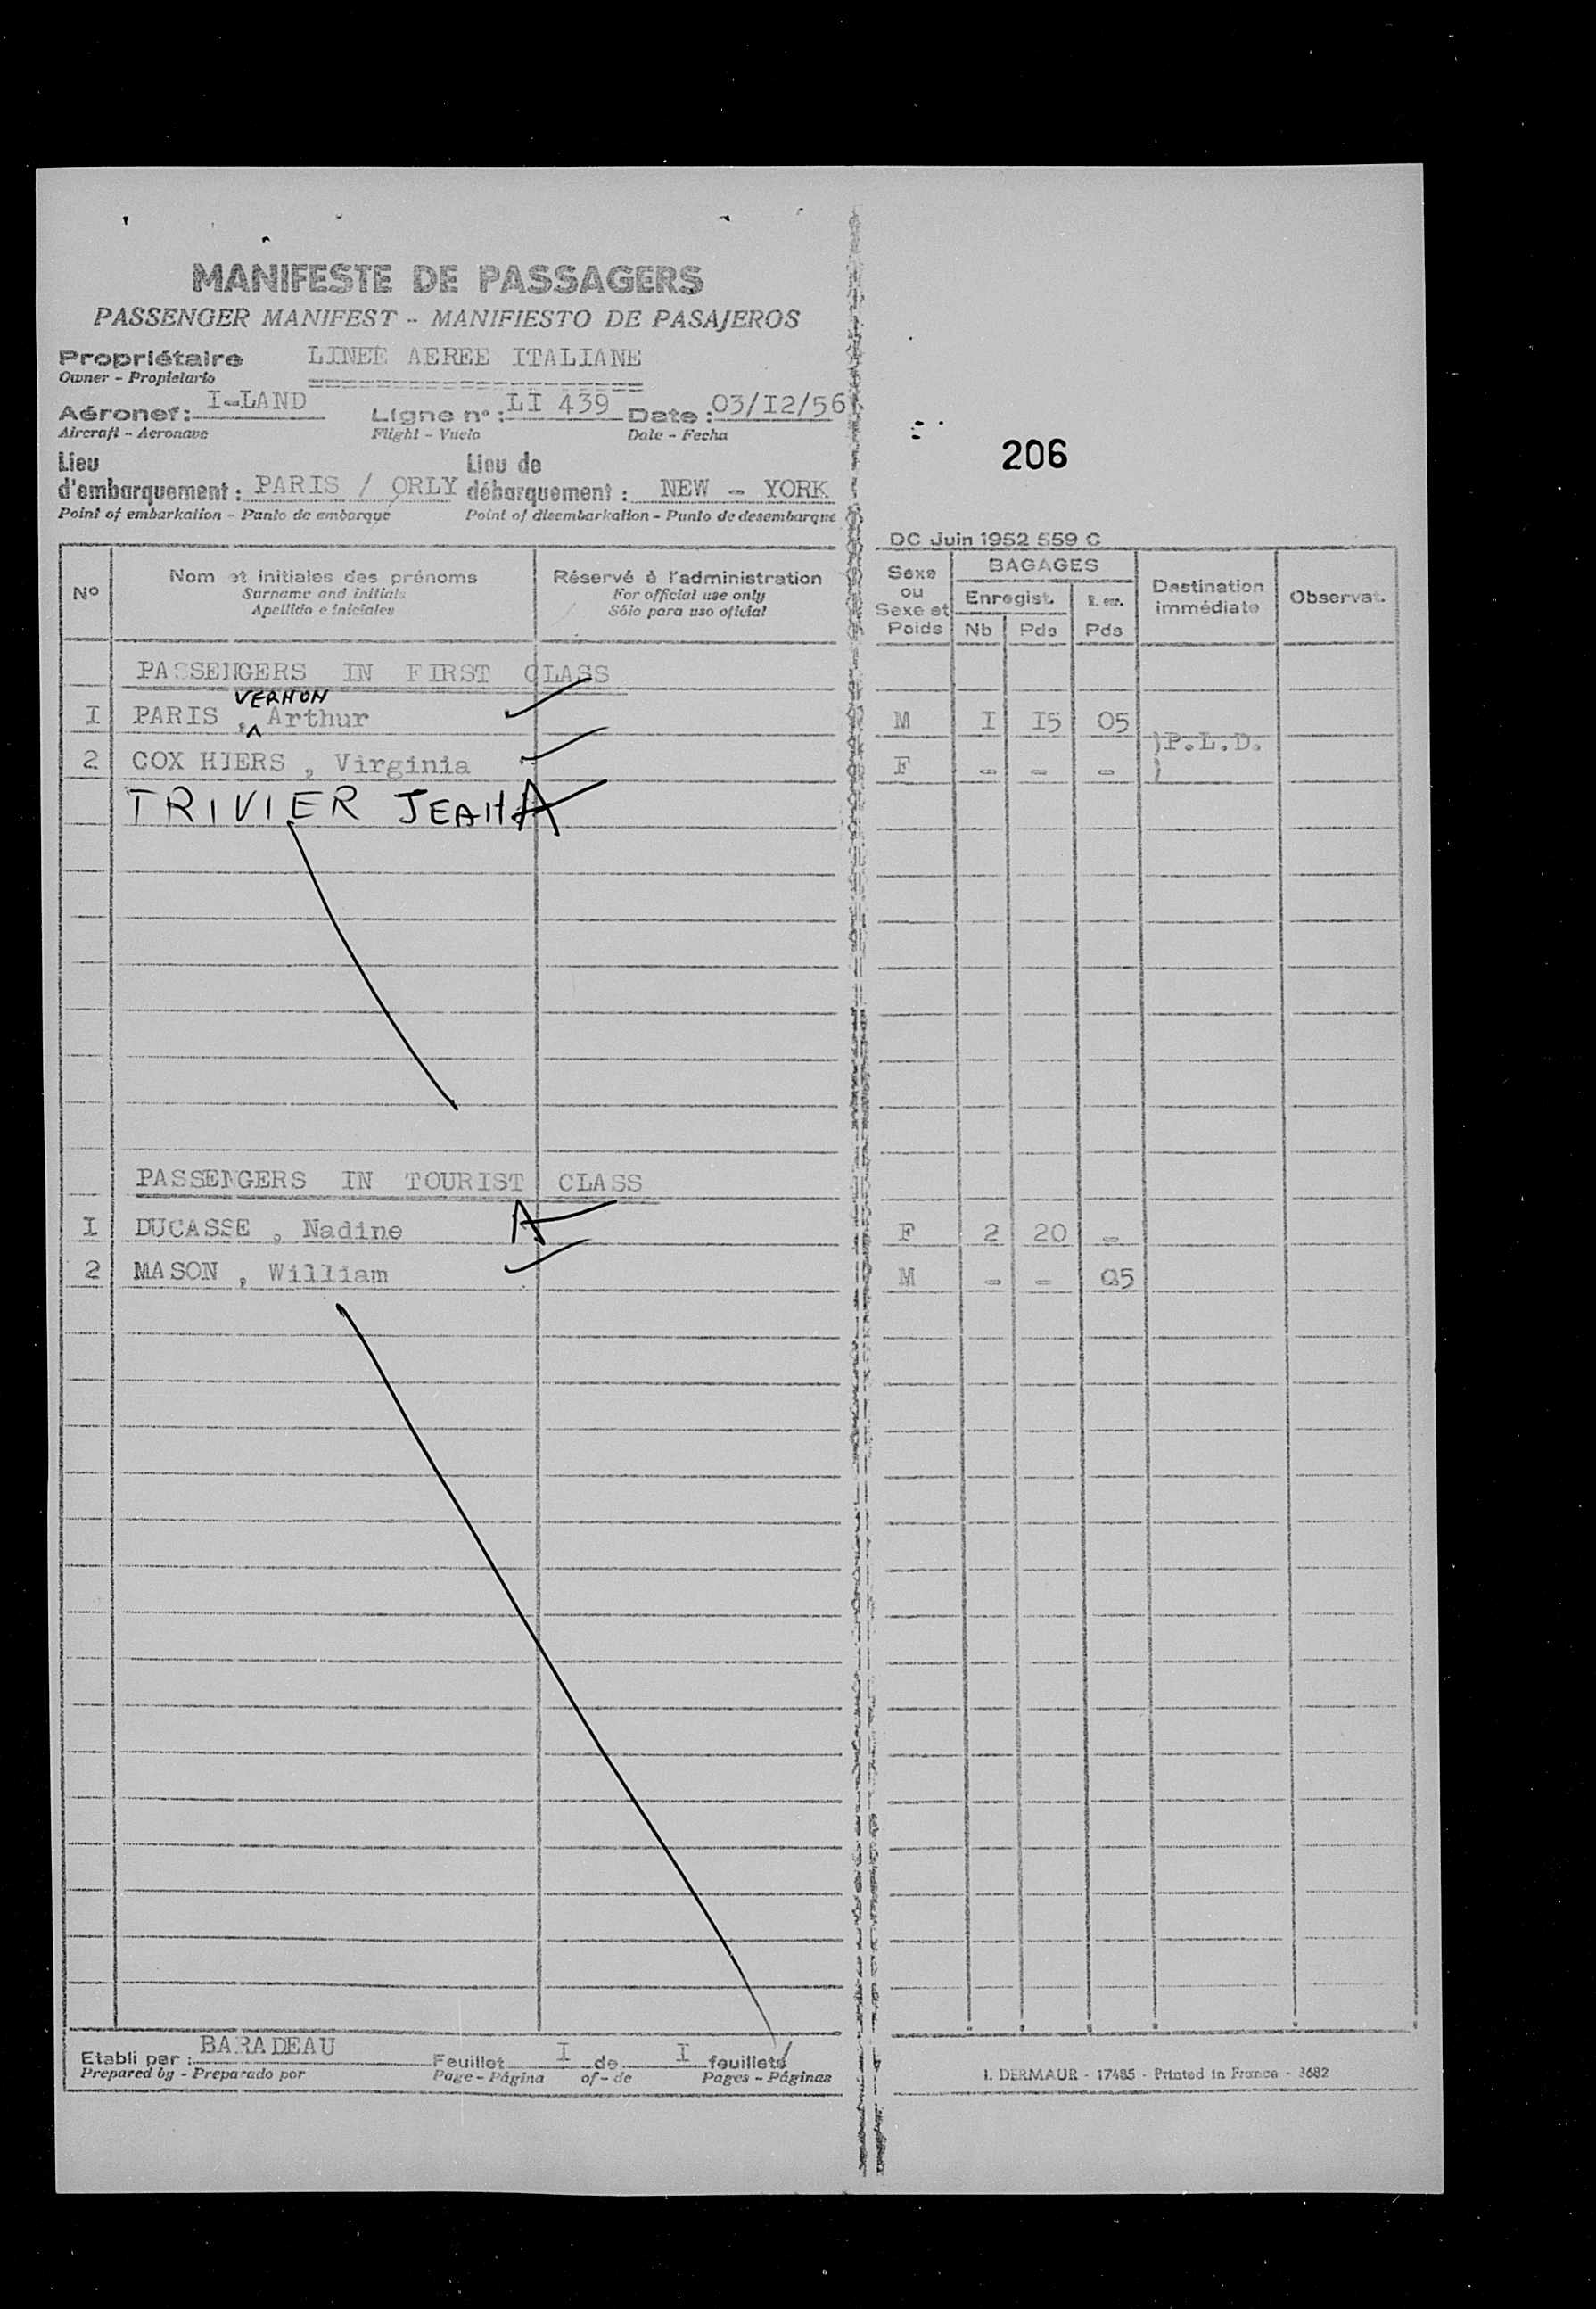 MANIFESTE DE PASSAGERS
PASSENGER MANIFEST - MANIFIESTO DE PASAJEROS
Propriétaire LINEE AEREE ITALIANE
Owner - Propietario
Aéronef: I-LAND Ligne n°: LI 439 Date: 03/I2/56
Aircraft - Aeronave Flight - Vuelo Date - Fecha
206
Lieu d'embarquement: PARIS / ORLY Lieu de débarquement: NEW - YORK
Point of embarkation - Punto de embarque Point of disembarkation - Punto de desembarque
DC Juin 1952 559 C
N° Nom et initiales des prénoms Réservé à l'administration Sexe ou Sexe et Poids BAGAGES Destination immédiate Observat.
Surname and initials For official use only Enregist.
Apellido e iniciales Sólo para uso oficial Nb Pds Pds
PASSENGERS IN FIRST CLASS
VERNON
I PARIS , Arthur M I I5 05
)P.L.D.
2 COX HIERS , Virginia F - - - )
TRIVIER JEAN A
PASSENGERS IN TOURIST CLASS
I DUCASSE , Nadine A F 2 20 -
2 MASON , William M - - 05
Etabli par: BARADEAU Feuillet I de I feuillets
Prepared by - Preparado por Page - Página of - de Pages - Páginas
I. DERMAUR - 17485 - Printed in France - 3682